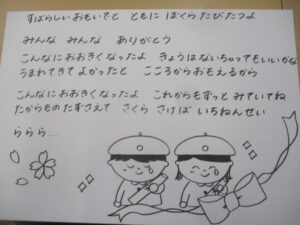 すばらしいおもいでと ともに ぼくら たびだつよ
みんな みんな ありがとう
こんなにおおきくなったよ きょうはないちゃってもいいかな
うまれてきて よかったと こころからおもえるから
こんなに おおきくなったよ これからもずっと みていてね
たからものたずさえて さくら さけば いちねんせい
ららら...